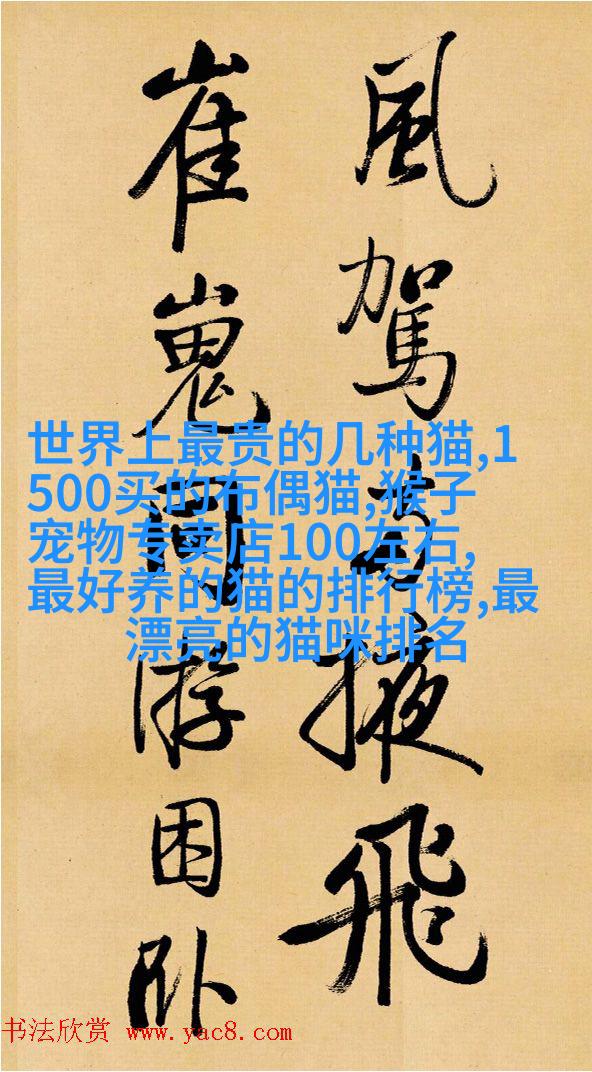 風駕掖飛
崔嵬游困卧
世界上最贵的几种猫,1
500买的布偶猫,猴子
宠物专卖店100左右,
最好养的猫的排行榜,最
漂亮的猫咪排名
书法欣赏 www.yac8.com